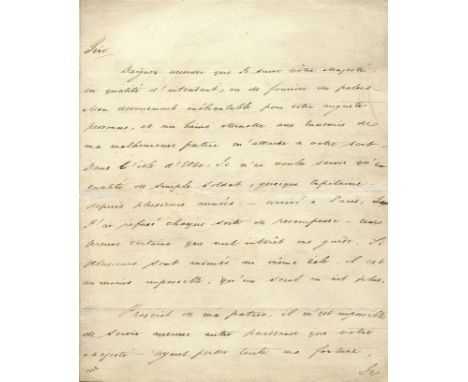 Sire
Daignez accorder que Je suive vôtre Majesté
en qualité d'intendant, ou de fourrier du palais.
Mon devouement inébranlable pour votre auguste
personne, et un haine eternelle aux ennemis de
ma malheureuse patrie m'attache a votre sort.
Dans l'isle d'Elbe, Je n'ai voulu servir qu'en
qualité de simple Soldat, quoique Capitaine
depuis plusieurs années. — arrivé a Paris,
J'ai refusé chaque sorte de recompense —
preuve certaine que nul intérêt me guide. Si
plusieurs sont animés du même zele, il est
au moins impossible qu'un seul en ait plus.
Proscrit de ma patrie, il m'est impossible
de servir aucune autre puissance que votre
Majesté — ayant perdu toute ma fortune,
Je